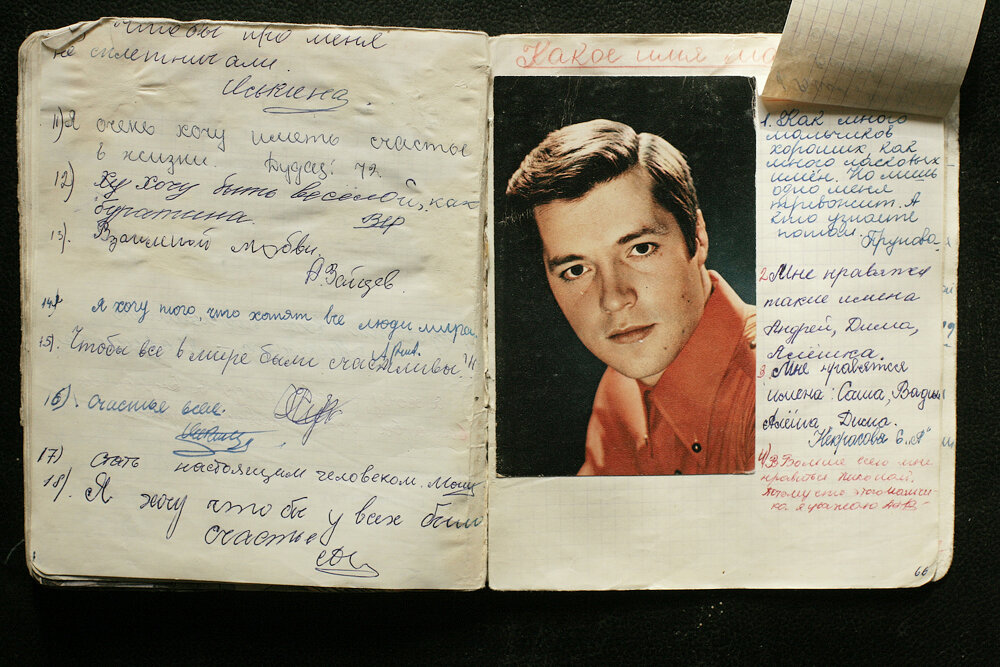 "Чтобы про меня
не сплетничали.
11) Я очень хочу иметь счастье
в жизни
12) хочу быть весёлой, как
буратина.
13). Взаимной любви.
А Зайцев.
14) я хочу того, что хотят все люди мира.
15). Чтобы все в мире были счастливы.
16). счастье всем.
17) стать настоящим человеком.
18). Я хочу что бы у всех было
счастье
Какое имя
1. Как много
мальчиков
хороших, как
много ласковых
имён. Но лишь
одно меня
тревожит. А
кто узнаете
потом.
2 Мне нравятся
такие имена
Андрей, Дима,
Алёшка.
3 Мне нравятся
имена: Саша, Вадим
Алёша, Дима.
Некрасова 6 "А"
4) Больше всего мне
нравиться Николай.
Потому что этого мальчи-
ка я уважаю
66